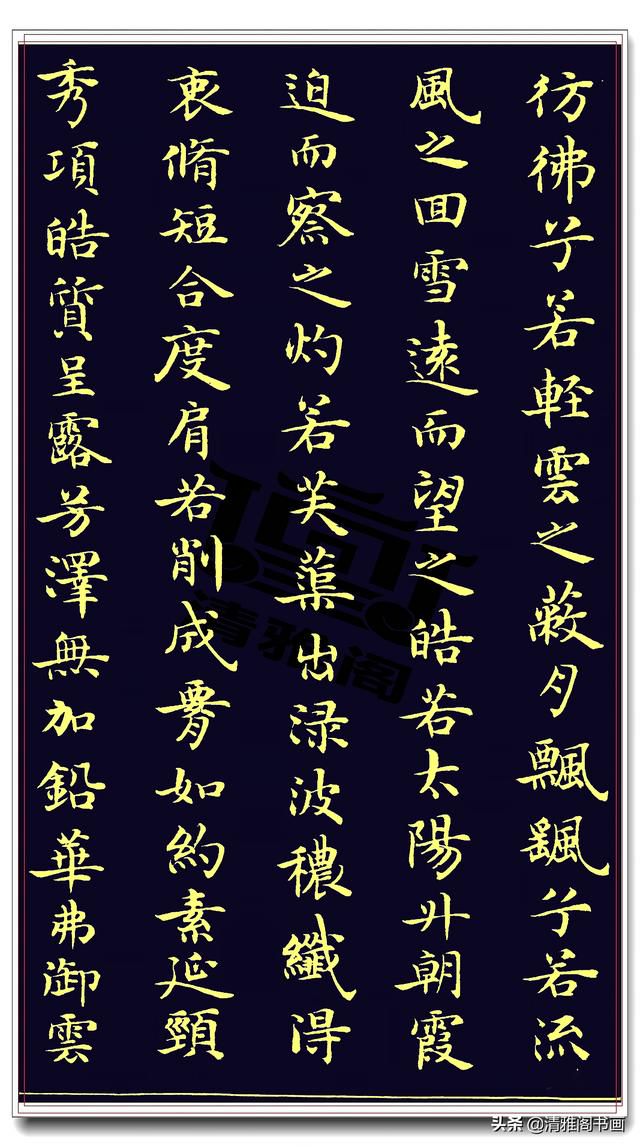 彷彿兮若軽雲之蔽月飄颻兮若流
風之囬雪遠而望之皓若太陽升朝霞
迫而察之灼若芙蕖出渌波穠纖得
衷脩短合度肩若削成腰如約素延頸
秀項皓質呈露芳澤無加鉛華弗御雲
清雅阁
头条 @清雅阁书画